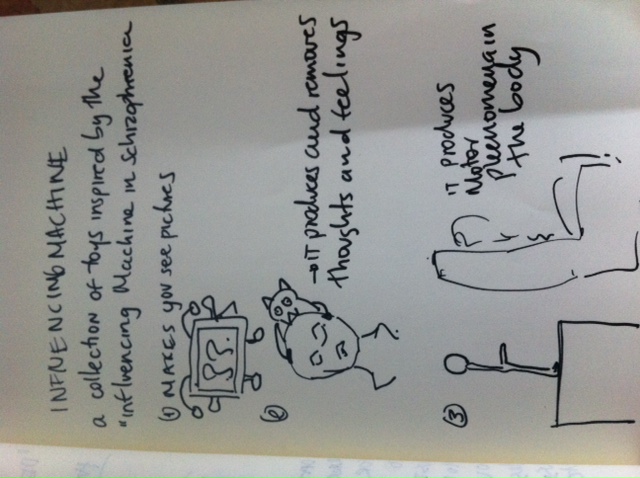 INFLUENCING MACHINE
a collection of toys inspired by the
"influencing Machine in schizophrenia
(1) MAKES you see pictures
??.
(2)
→ IT produces and removes
thoughts and feelings
(3)
IT produces
Motor
phenomena in
the body